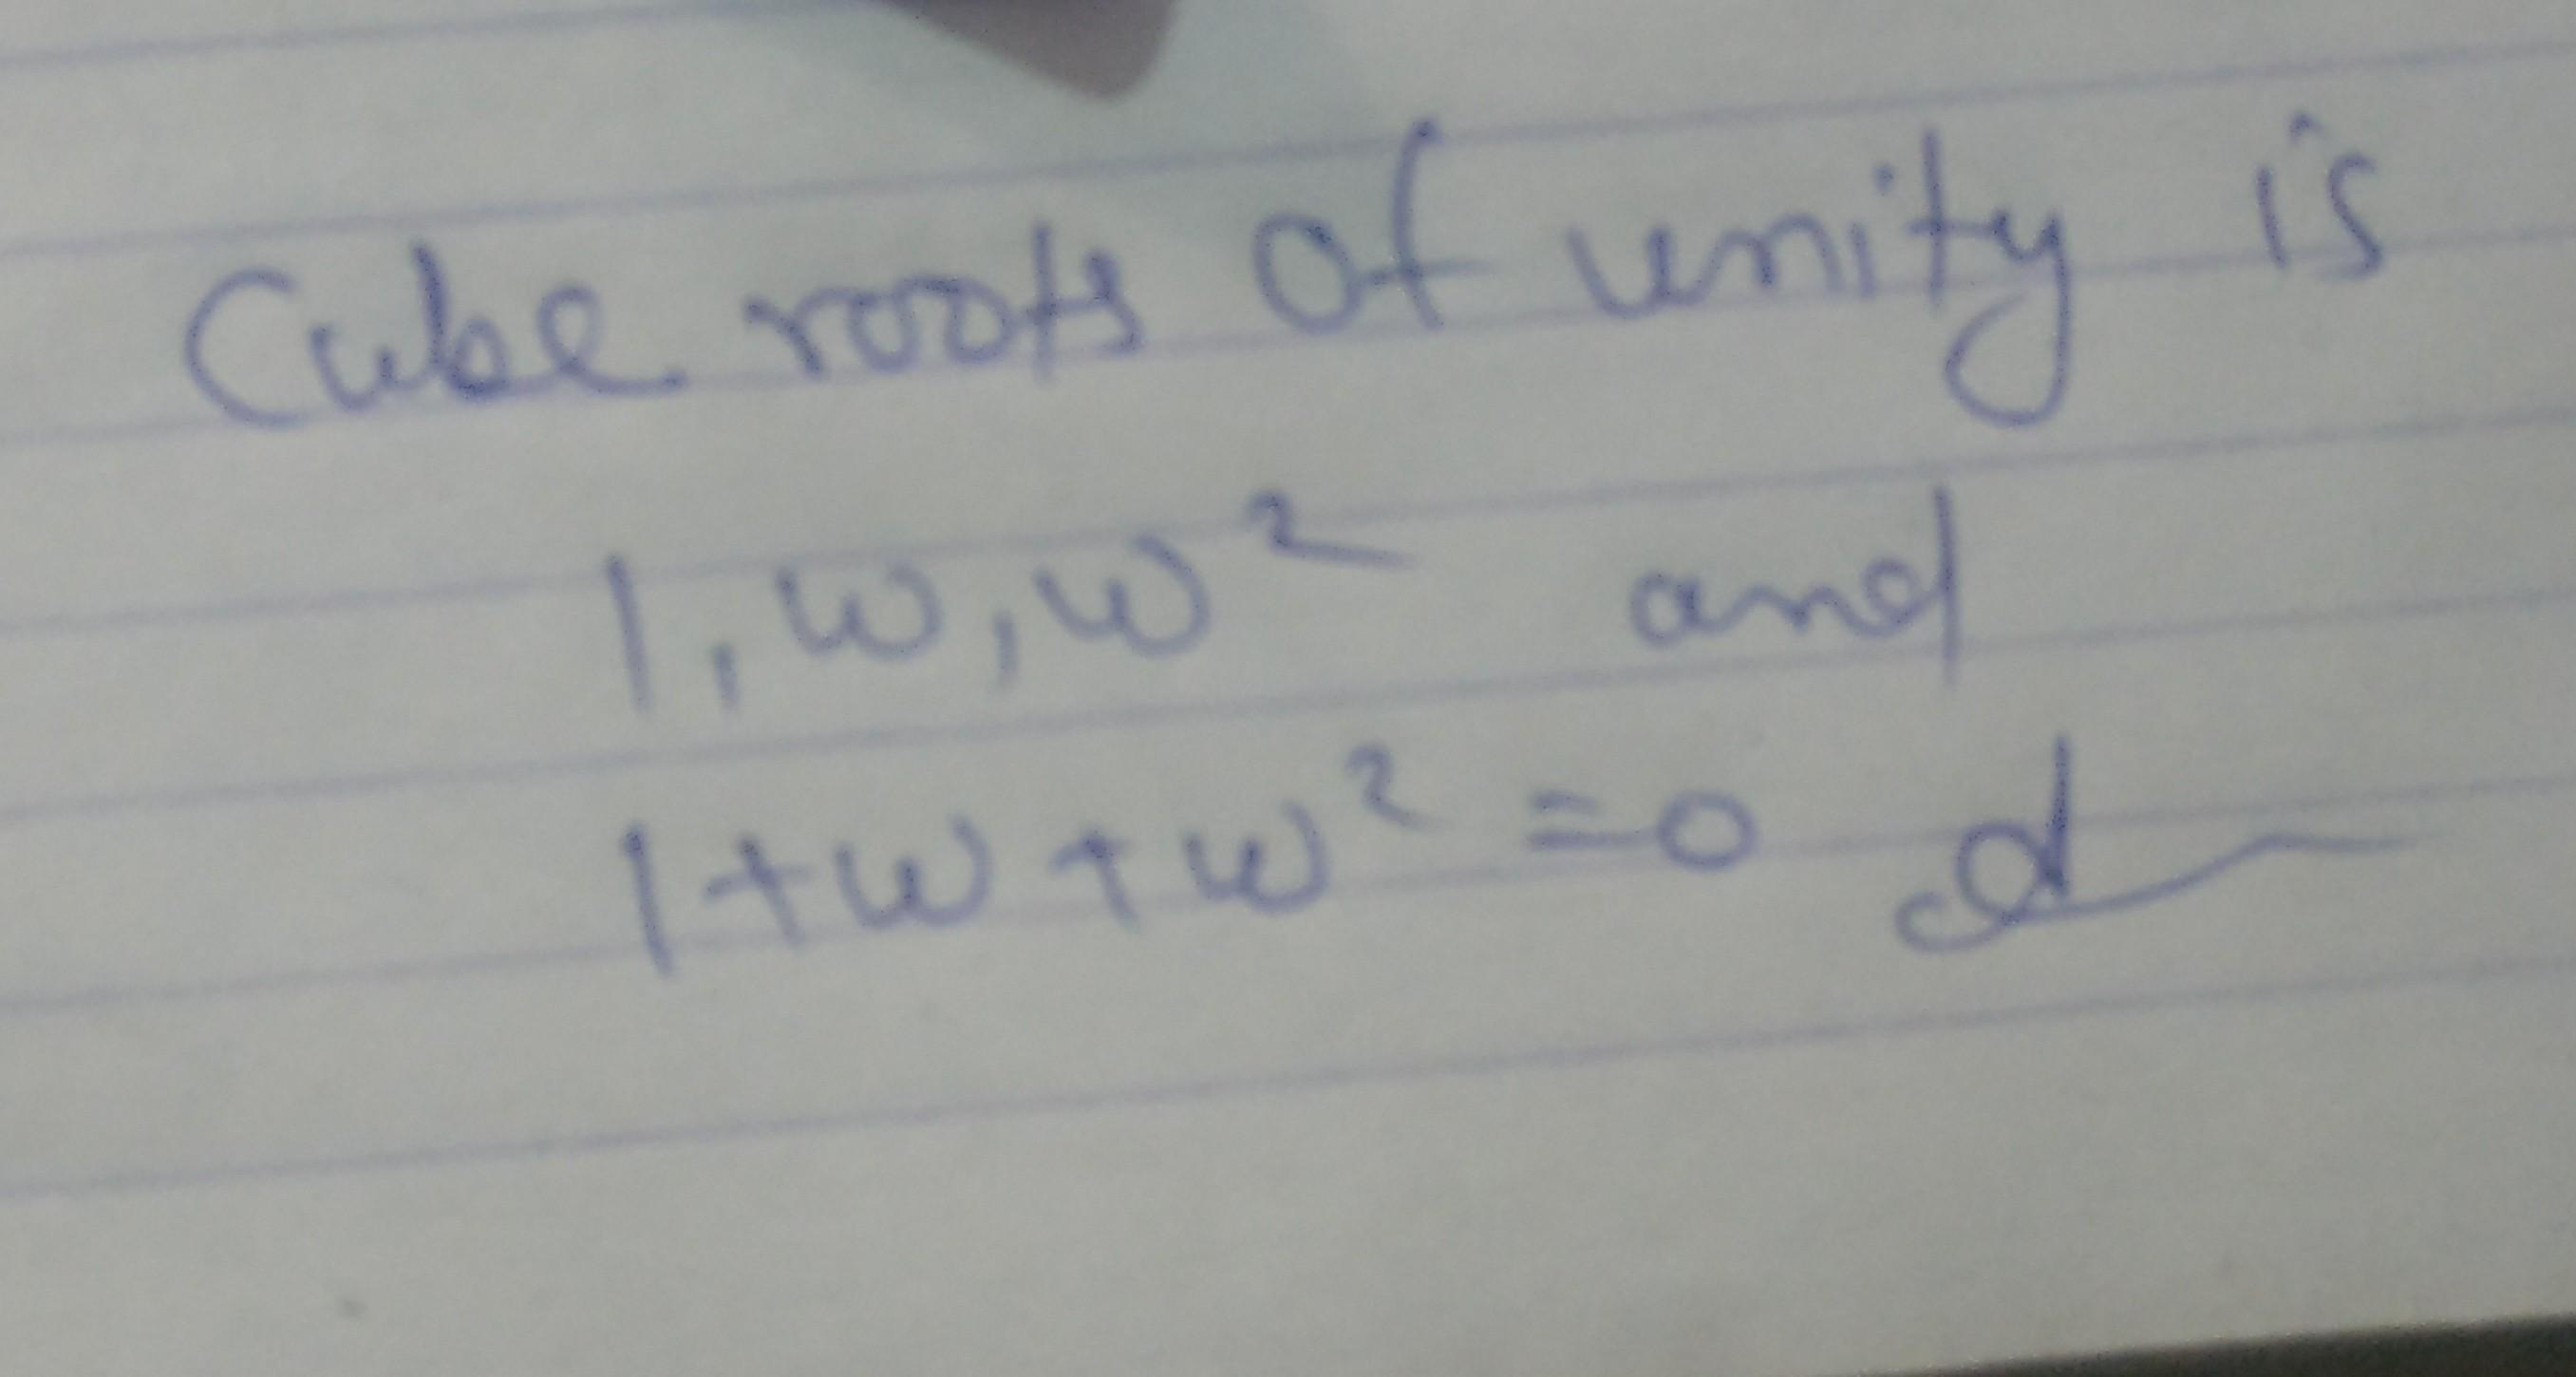 Cube roots of unity is
1, ω, ω² and
1+ω+ω²=0